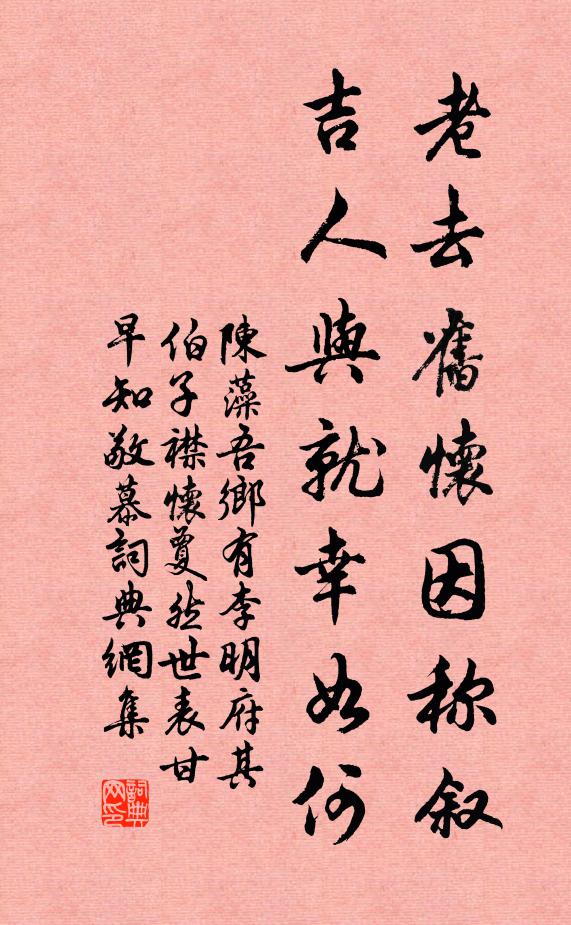 老去舊懷因称叙
吉人與就幸如何
陳藻吾鄉有李明府其
伯子襟懷夐然世表甘
早知敬慕詞典網集
詞典网印